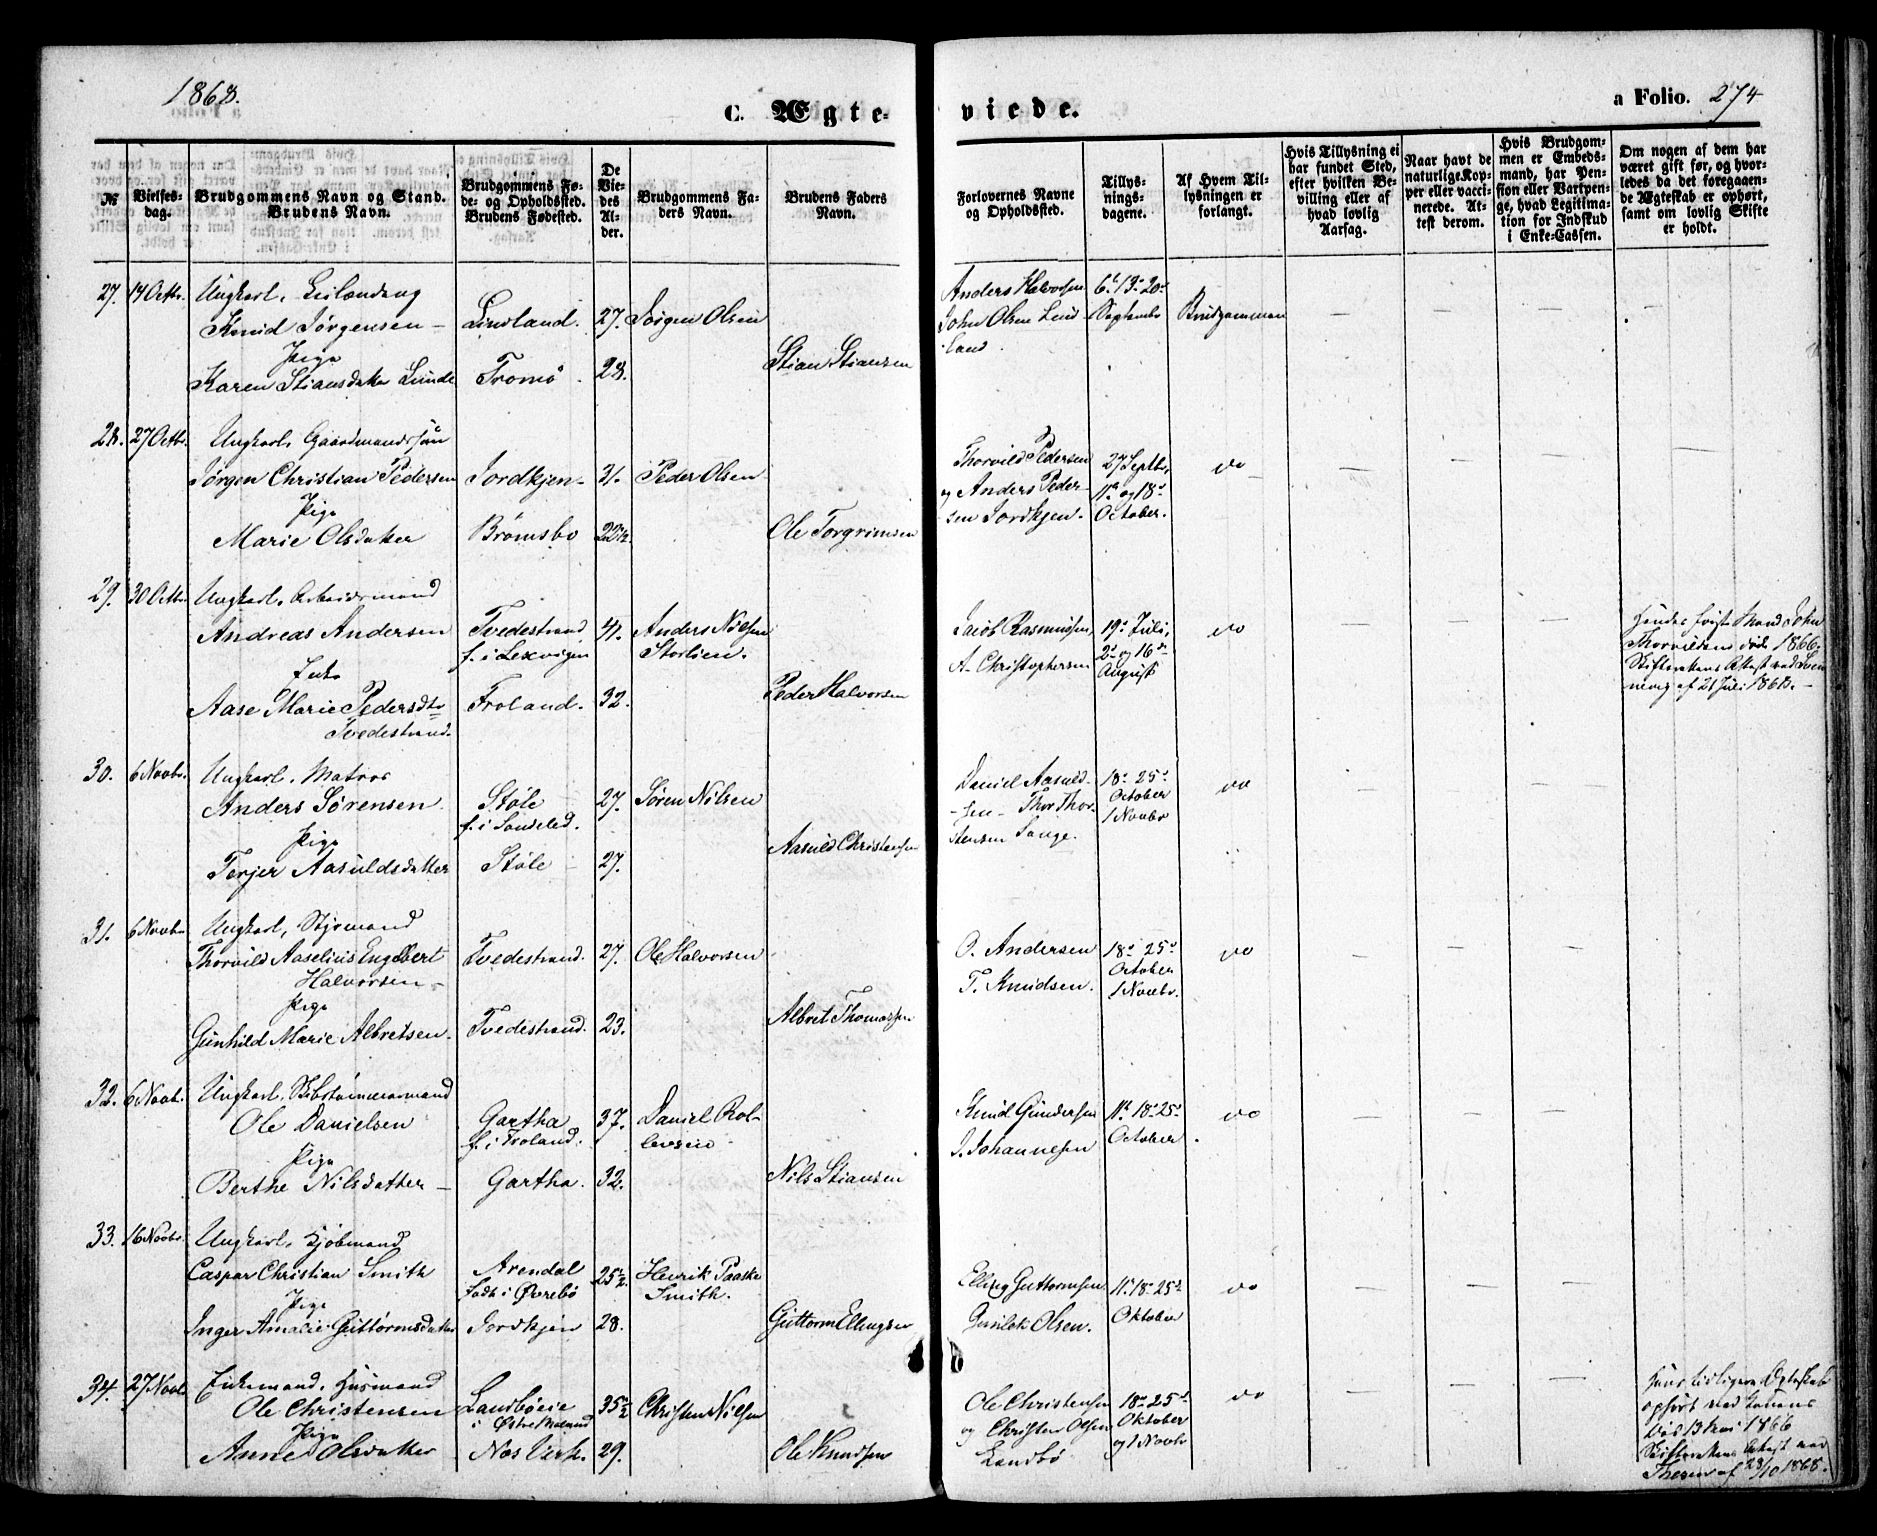 1868.
C. Ægte-
viede.
a Folio. 274
№
Vielses-
dag.
Brudgommens Navn og Stand.
Brudens Navn.
Brudgommens Fø-
de- og Opholdsted.
Brudens Fødested.
De
Vie-
des
Al-
der.
Brudgommens Fa-
ders Navn.
Brudens Faders
Navn.
Forlovernes Navne
og Opholdsted.
Tillys-
nings-
dagene.
Af Hvem Til-
lysningen er
forlangt.
Hvis Tillysning ei
har fundet Sted,
efter hvilken Be-
villing eller af
hvad lovlig
Aarsag.
Naar havt de
naturlige Kop-
per eller vacci-
nerede. At-
test derom.
Hvis Brudgom-
men er Embeds-
mand, har Pen-
sion eller Vartpen-
ge, hvad Legitima-
tion for Indskud
i Enke-Cassen.
Om nogen af dem har
været gift før, og hvor-
ledes da det foregaaen-
de Ægteskab er ophørt,
samt om lovlig Skifte
er holdt.
27. 14 Octbr. Ungkarl,
Knud Jørgensen Lindland. 27. Jørgen Olsen
Pige
Karen Stiansdatter Lunde Tromø 28. Stian Stiansen
Anders Halvorsen 6. 13. 20.
John Olsen Lind- September Brudgommen
land.
28. 27 Octbr. Ungkarl, Gaardmandssøn
Jørgen Christian Pedersen Jordkjen 31. Peder Olsen
Pige
Marie Olsdatter Brømsbo 22½ Ole Torgrimsen
Thorvild Pedersen 27 Septbr, do
og Anders Peder- 11 og 18
sen Jordkjen. October.
29. 30 Octbr. Ungkarl, Arbeidsmand
Andreas Andersen Tvedestrand 41. Anders Nilsen
f. i Lexvigen Storlien.
Enke
Aase Marie Pedersdtr Froland. 32. Peder Halvorsen
Tvedestrand.
Jacob Rasmussen 19. Juli, do
A. Christophersen 2 og 16
August
Hendes første Mand John
Thorvildsen død 1866.
af 21 Juli 1868.
30. 6 Novbr. Ungkarl. Matros
Anders Sørensen Støle 27. Søren Nilsen
f. i Sondeled.
Pige
Terjer Aasuldsdatter Støle 27. Aasuld Christensen
Daniel Aasuld- 18. 25. do
sen Thor Thor- October
stensen Songe. 1 Novbr
31. 6 Novbr. Ungkarl, Styrmand
Thorvild Aaselius Engelbert Tvedestrand. 27. Ole Halvorsen
Halvorsen
Pige
Gunhild Marie Albretsen. Tvedestrand. 23. Albret Thomassen
O. Andersen 18. 25. do
T. Knudsen. October
1 Novbr.
32. 6 Novbr. Ungkarl, Skibstømmermand
Ole Danielsen Gartha 37. Daniel Rol-
f. i Froland. levsen
Pige
Berthe Nilsdatter Gartha. 32. Nils Stiansen
Knud Gundersen 11. 18. 25. do
J. Johannesen October
33. 16 Novbr. Ungkarl, Kjøbmand
Caspar Christian Smith Arendal 25½ Henrik Paaske
født i Øvrebø Smith.
Pige
Inger Amalie Guttormsdatter Jordkjen 28. Guttorm Ellingsen
Elling Guttormsen 11. 18. 25. do
Olsen. Oktober
34. 27 Novbr. Enkemand, Husmand
Ole Christensen Landbøeie 35½ Christen Nilsen
i Østre Moland
Pige
Anne Olsdatter Næs Værk. 29. Ole Knudsen
Ole Christensen 18. 25. do
og Christen Olsen Oktober
Landbø og 1 Novbr
Hans tidligere Ægteskab
ophørt ved Konens
Død 13 1866
af 28/10 1868.